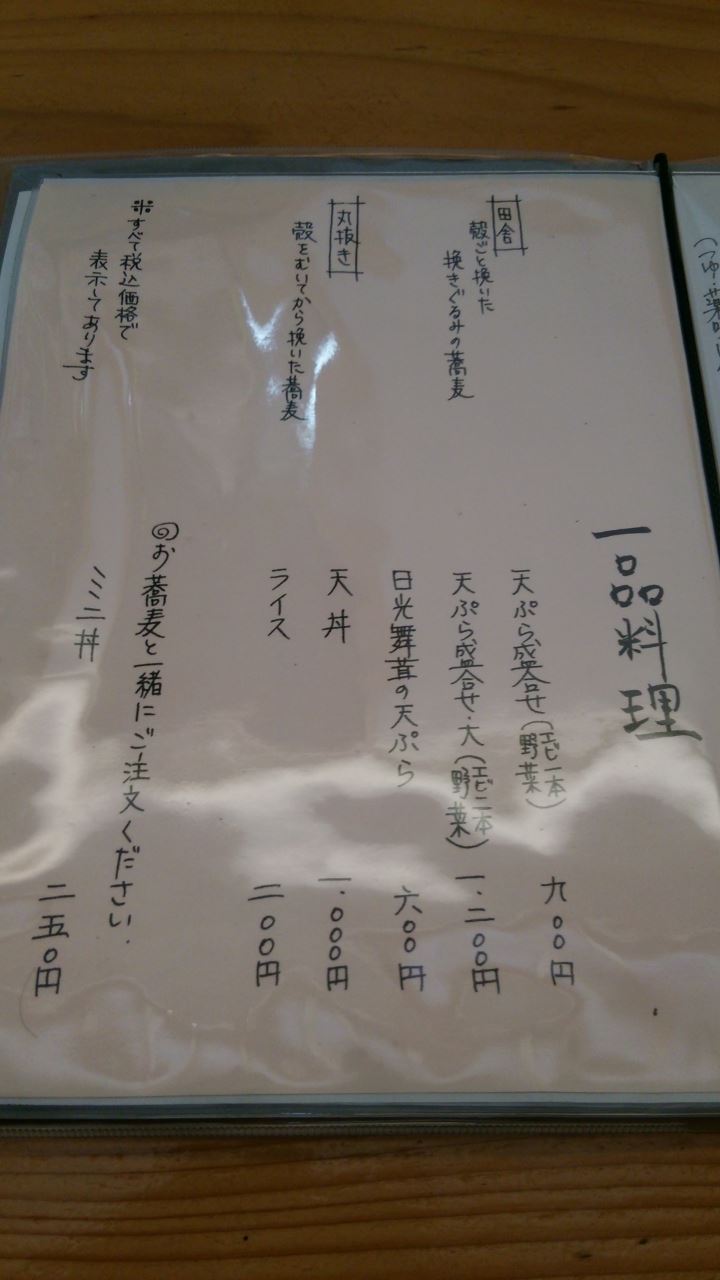 つゆ・薬味
一品料理
天ぷら盛合せ(エビ一本 野菜) 九〇〇円
天ぷら盛合せ・大(エビ二本 野菜) 一.二〇〇円
日光舞茸の天ぷら 六〇〇円
天丼 一.〇〇〇円
ライス 二〇〇円
◎お蕎麦と一緒にご注文ください.
ミニ丼 二五〇円
田舎
殻ごと挽いた
挽きぐるみの蕎麦
丸抜き
殻をむいてから挽いた蕎麦
※すべて税込価格で
表示してあります